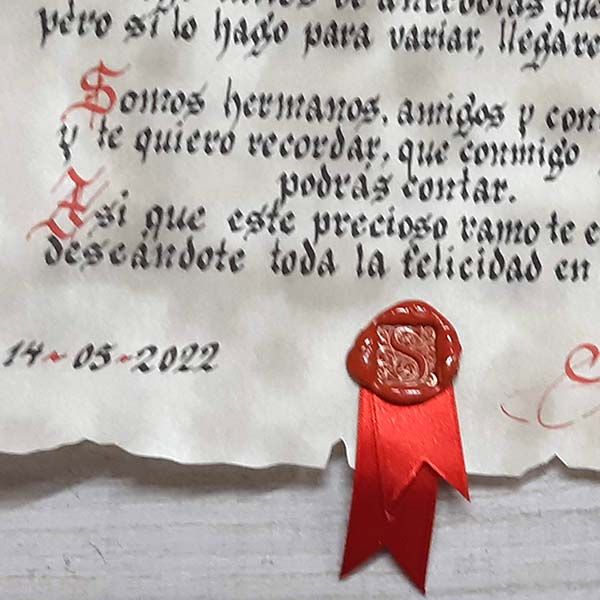 de anécdotas que
pero si lo hago para variar, llegare
Somos hermanos, amigos y con
y te quiero recordar, que conmigo
podrás contar.
Asi que este precioso ramo te e
deseándote toda la felicidad en
14-05-2022
S